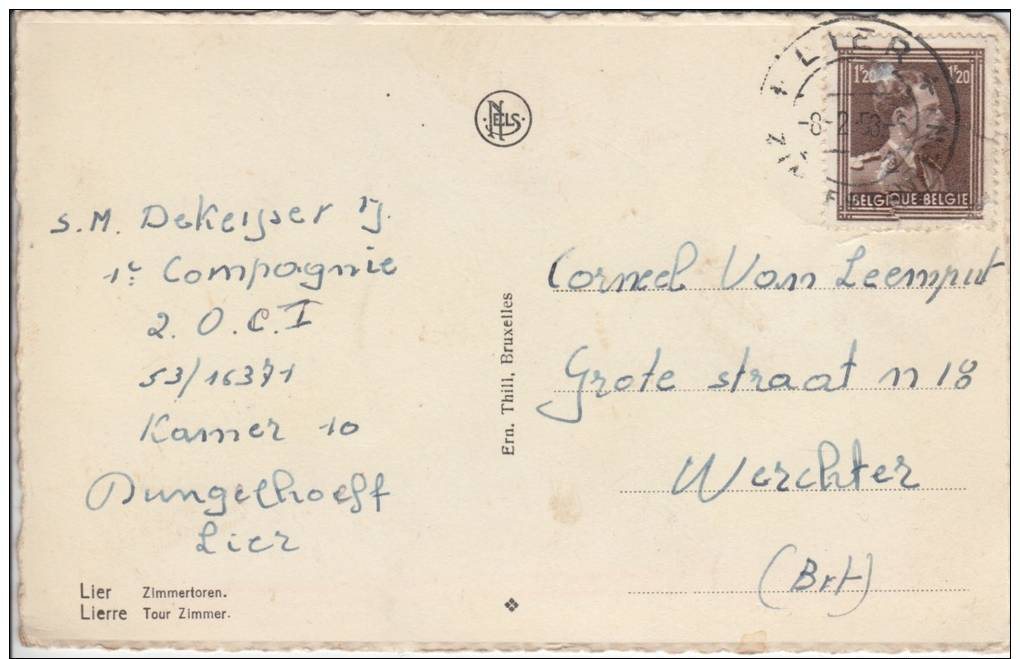 NELS
LIER
-8-2-53-
1F20 1F20
BELGIQUE-BELGIE
S.M. DeKeijser
1e Compagnie
2. O.C.I
53/16371
Kamer 10
Dungelhoeff
Lier
Ern. Thill, Bruxelles
Corneel Van Leemput
Grote straat n 18
Werchter
(Brt)
Lier Zimmertoren.
Lierre Tour Zimmer.